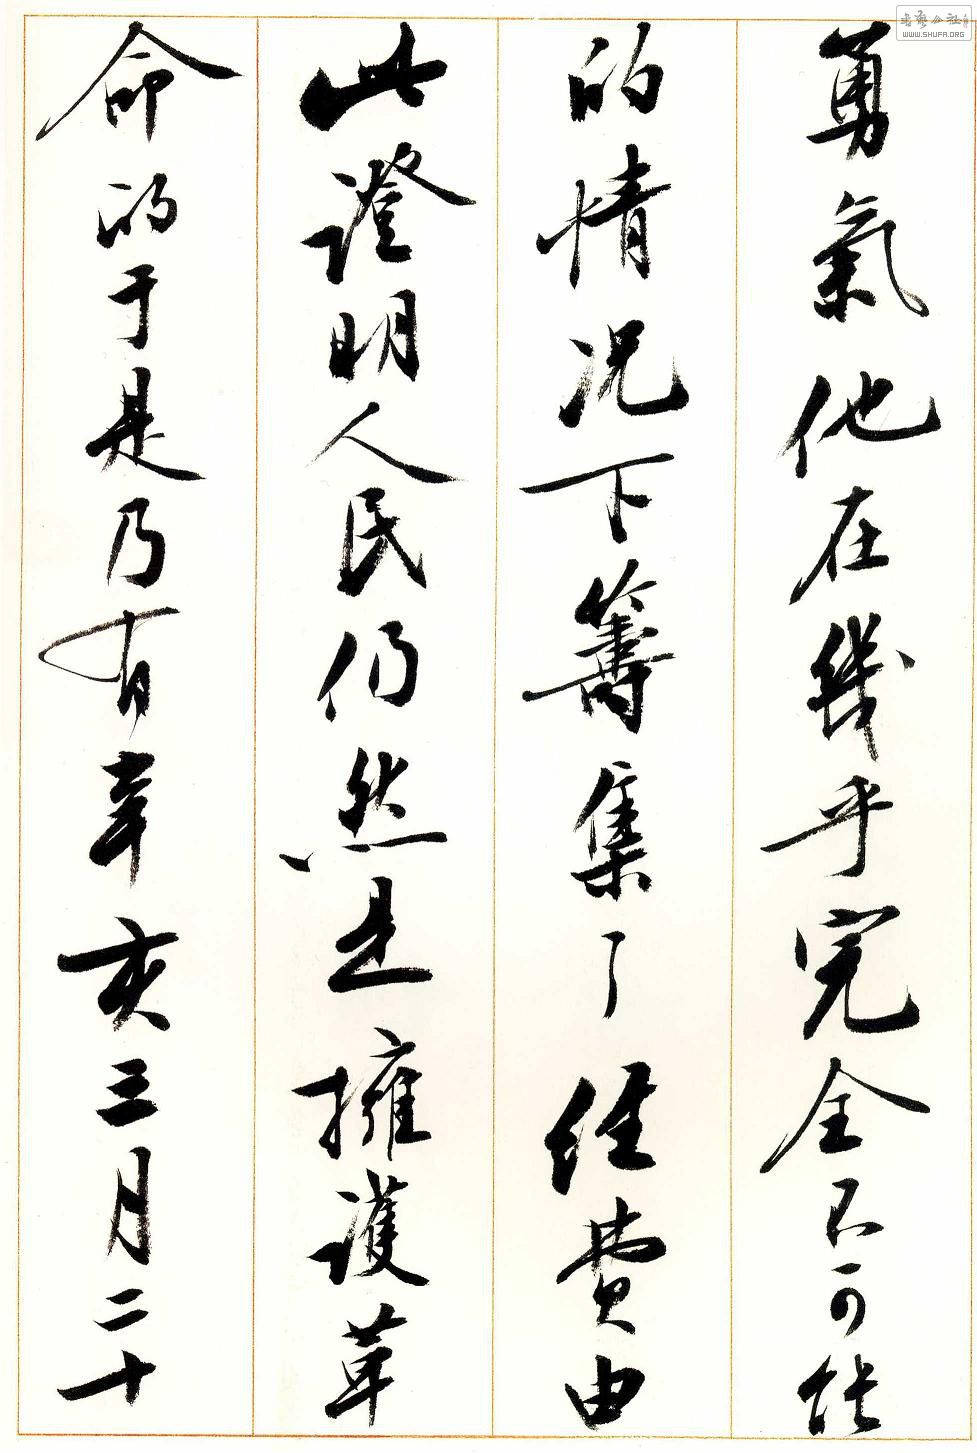 勇氣他在幾乎完全不可能
的情况下籌集了經費由
此證明人民仍然是擁護革
命的于是乃有辛亥三月二十
书法公社
WWW.SHUFA.ORG